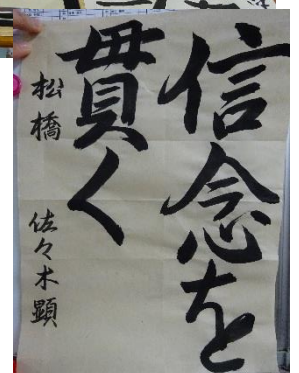 信念を
貫く
松橋 佐々木顕